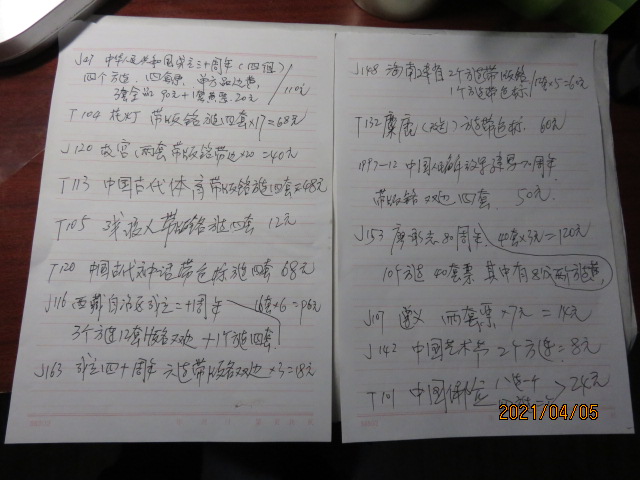 J27 中华人民共和国成立三十周年（四组）
四个方连，四套票，单方品边费，
3套全品 90元+1套 20元 110元
T104 花灯 带版铭方连四套×17=68元
J120 故宫，两套带版铭带边×20=40元
T113 中国古代体育带版铭方连四套=48元
T105 残疾人带版铭方连四套 12元
T120 中国古代神话带色标方连四套 68元
J116 西藏自治区成立二十周年 16套×6=96元
3个方连12套版铭双边+1个方连四套
J163 成立四十周年 六连带版铭双边×3=18元
J148 海南建省2个方连带版铭
1个方连带色标 12套×5=60元
T132 麋鹿（改）方连带色标 60元
1997-12 中国人民解放军建军70周年
带版铭双边四套 50元
J153 廖承志80周年 40套×3元=120元
10个方连 40套票 其中有8分
J107 遵义 两套票×7元=14元
J142 中国艺术节 2个方连=8元
T101 中国保险 24元
2021/04/05